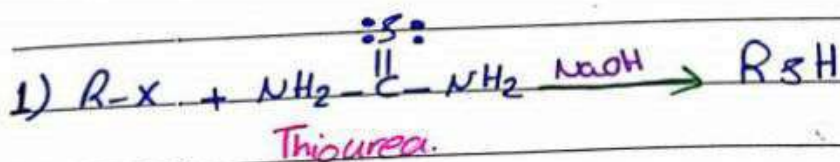 :S:
||
1) R-X + NH2-C-NH2 NaOH → RSH
Thiourea.